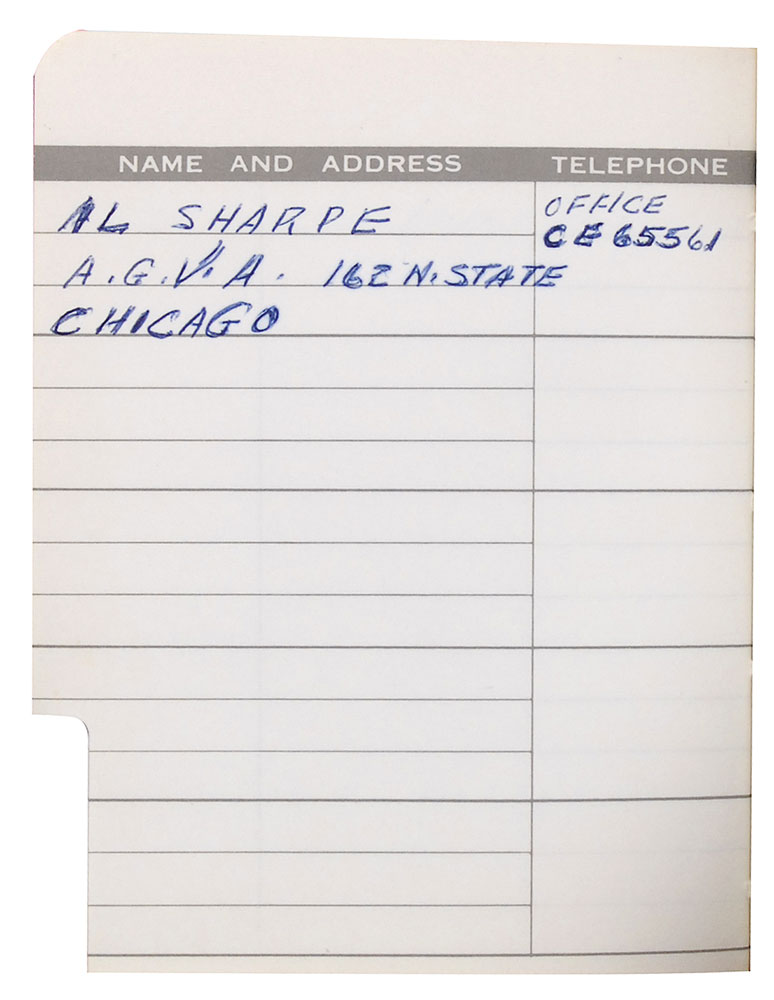 NAME AND ADDRESS TELEPHONE
AL SHARPE OFFICE
CE 65561
A.G.V.A. 162 N. STATE
CHICAGO